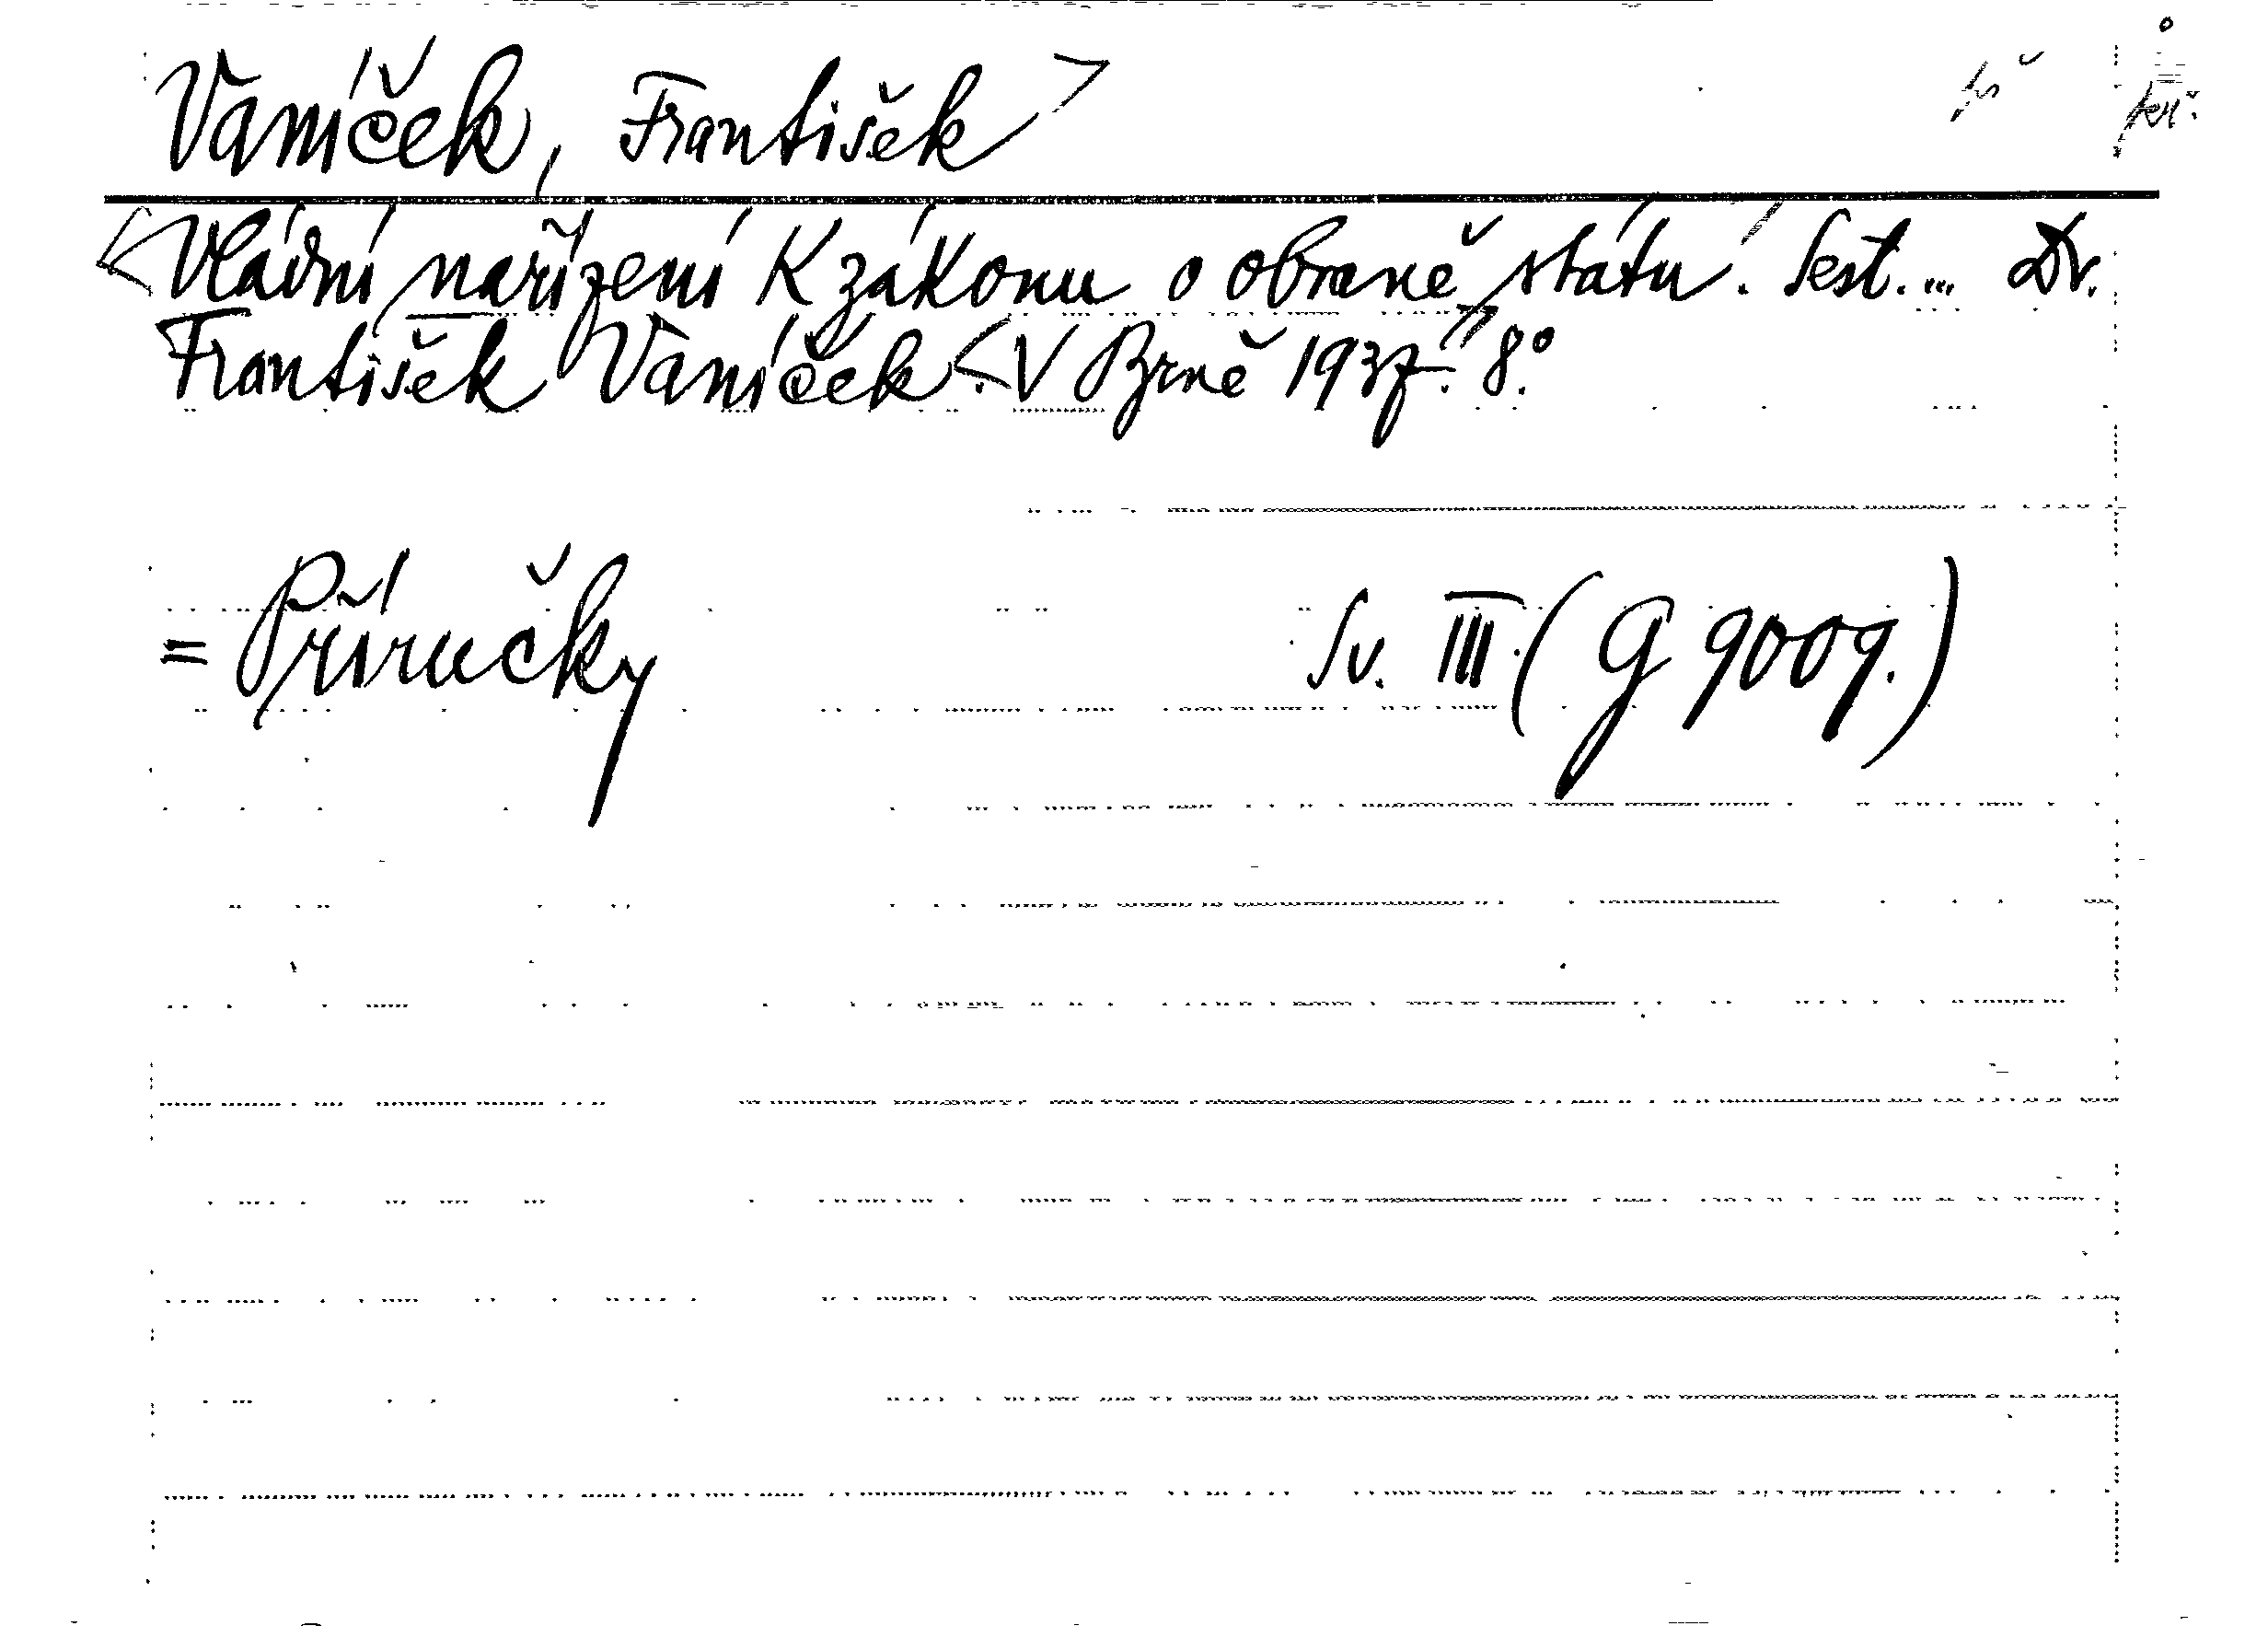 Vaníček, František
Vládní nařízení k zákonu o obraně státu. Sest. ... Dr.
František Vaníček. V Brně 1937. 8°.
= Příručky Sv. III. (G 9009.)